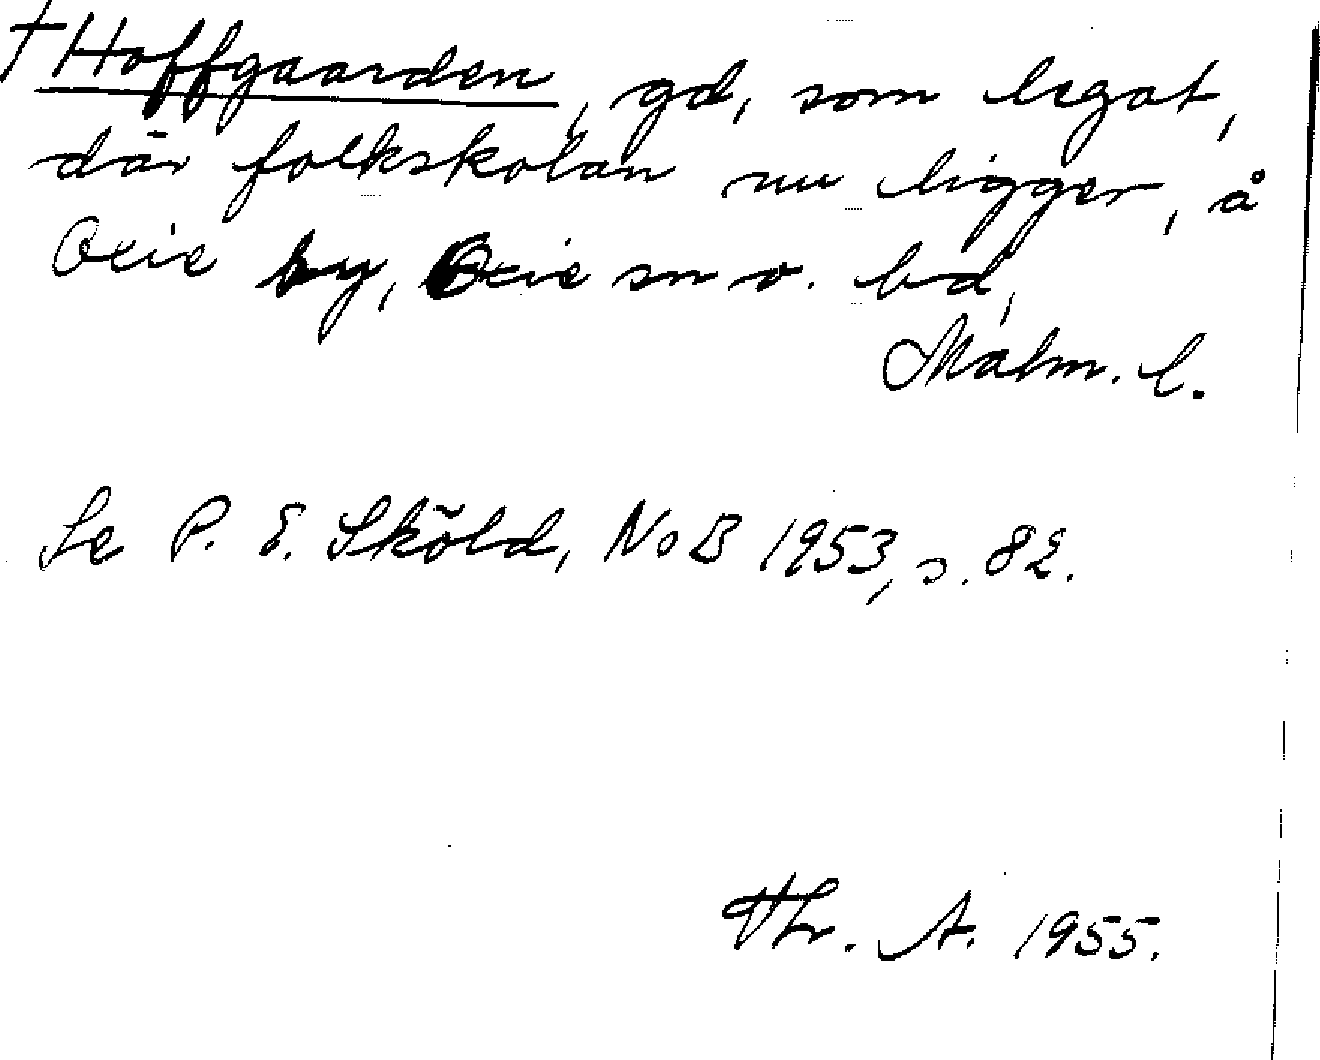 † Hoffgaarden, gd, som legat,
där folkskolan nu ligger, å
Oxie by, Oxie sn o. hd,
Malm. l.
Se P. E. Sköld, NoB 1953, s. 82.
Thr. A. 1955.